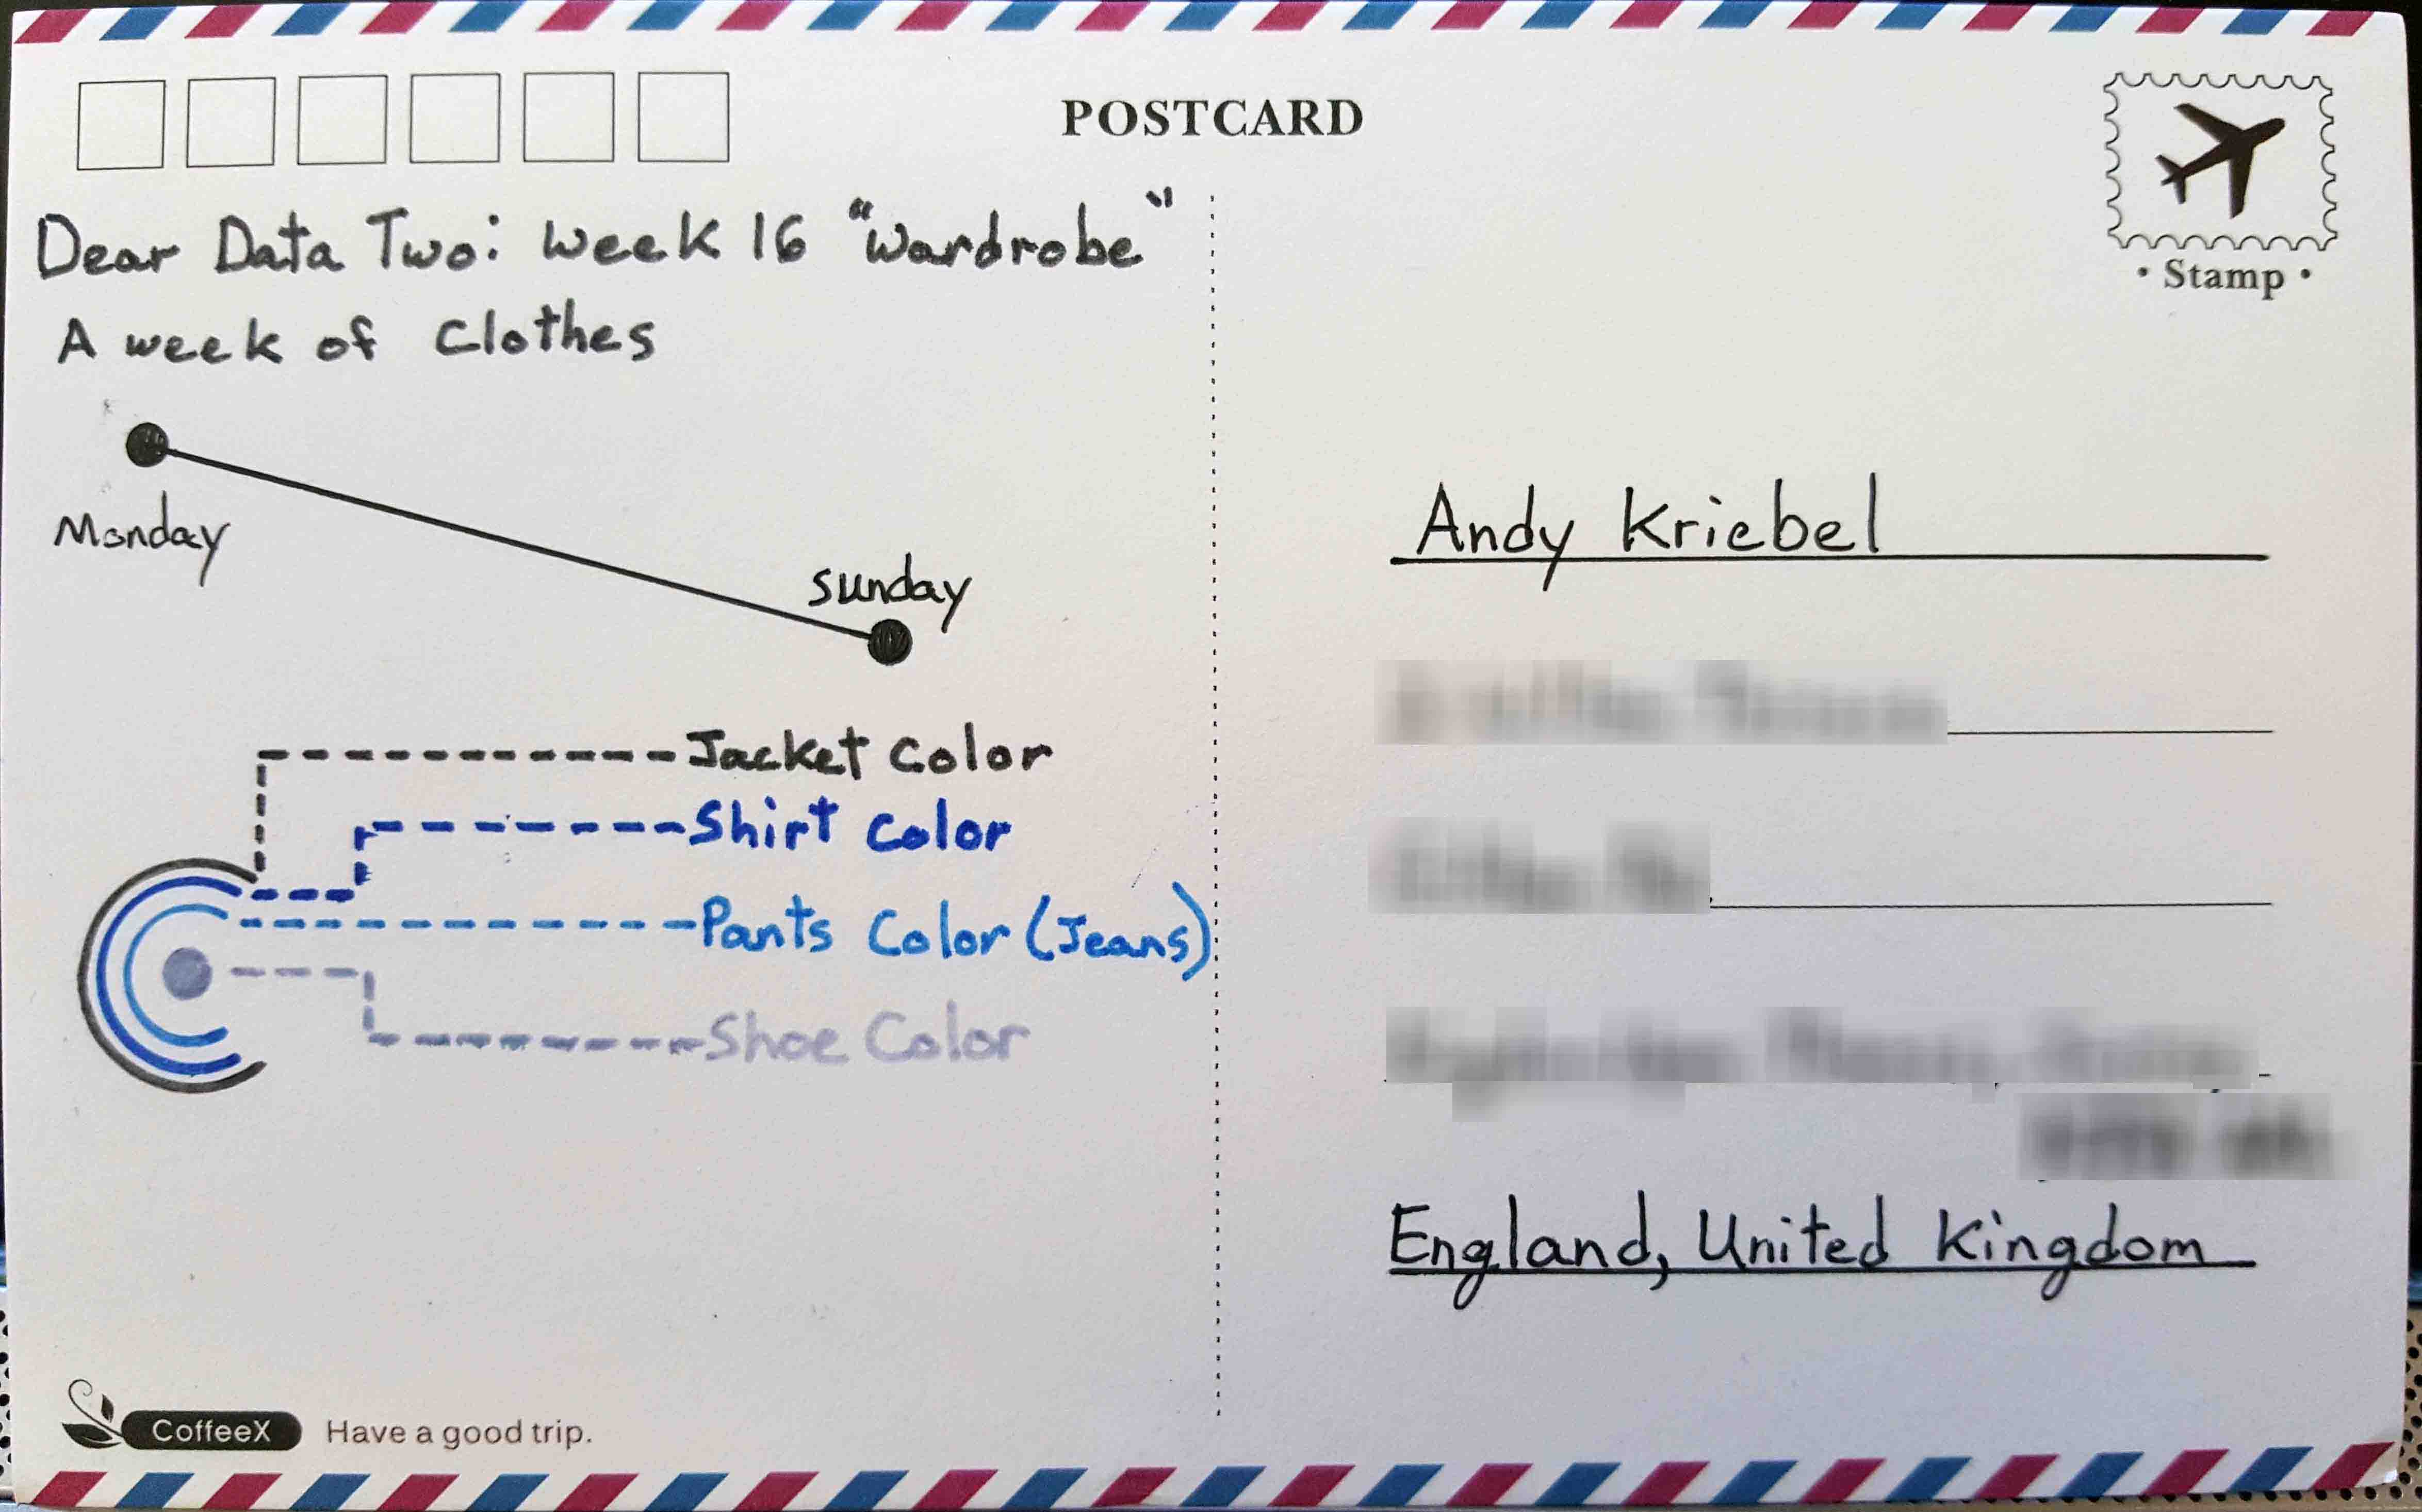 POSTCARD
• Stamp •
Dear Data Two: Week 16 "Wardrobe"
A week of Clothes
Monday
Sunday
Jacket Color
Shirt Color
Pants Color (Jeans)
Shoe Color
CoffeeX Have a good trip.
Andy Kriebel
England, United Kingdom